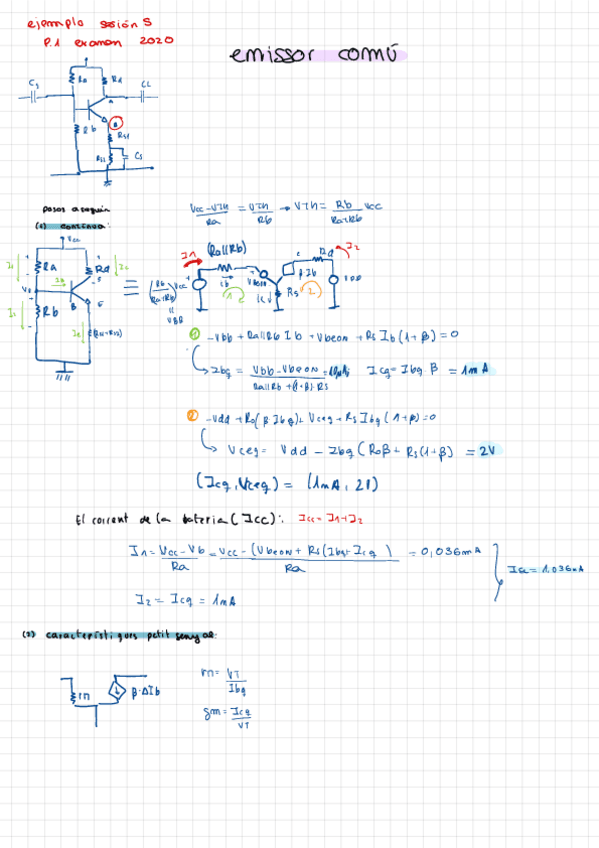 ejemplo sesión 5
P.1 examen 2020
emissor comú
Ra
Rd
C1
CL
Rb
Rs1
Rs2
Cs
pasos a seguir:
(1) contínua:
Vcc
Ra
Rd
Rb
(Rs1+Rs2)
Vcc-Vth/Ra = Vth/Rb → Vth = Rb/Ra+Rb Vcc
I1
(Ra||Rb)
Rd
I2
(Rb/Ra+Rb) Vcc
VBB
Ib
Vbeon
βIb
Rs
VDD
1
2
① -Vbb + Ra||Rb Ib + Vbeon + Rs Ib (1+β) = 0
Ibq = Vbb-Vbeon/Ra||Rb+(1+β)·Rs = 10μA Icq = Ibq β = 1mA
② -Vdd + Rd(β Ibq) + Vceq + Rs Ibq (1+β) = 0
Vceq = Vdd - Ibq (Rdβ + Rs(1+β)) = 2V
(Icq, Vceq) = (1mA, 2V)
El corrent de la bateria (Icc): Icc = I1+I2
I1 = Vcc-Vb/Ra = Vcc-(Vbeon + Rs(Ibq+Icq)/Ra = 0,036mA
Icc = 1.036mA
I2 = Icq = 1mA
(2) característiques petit senyal:
rπ
β·ΔIb
rπ = VT/Ibq
gm = Icq/VT